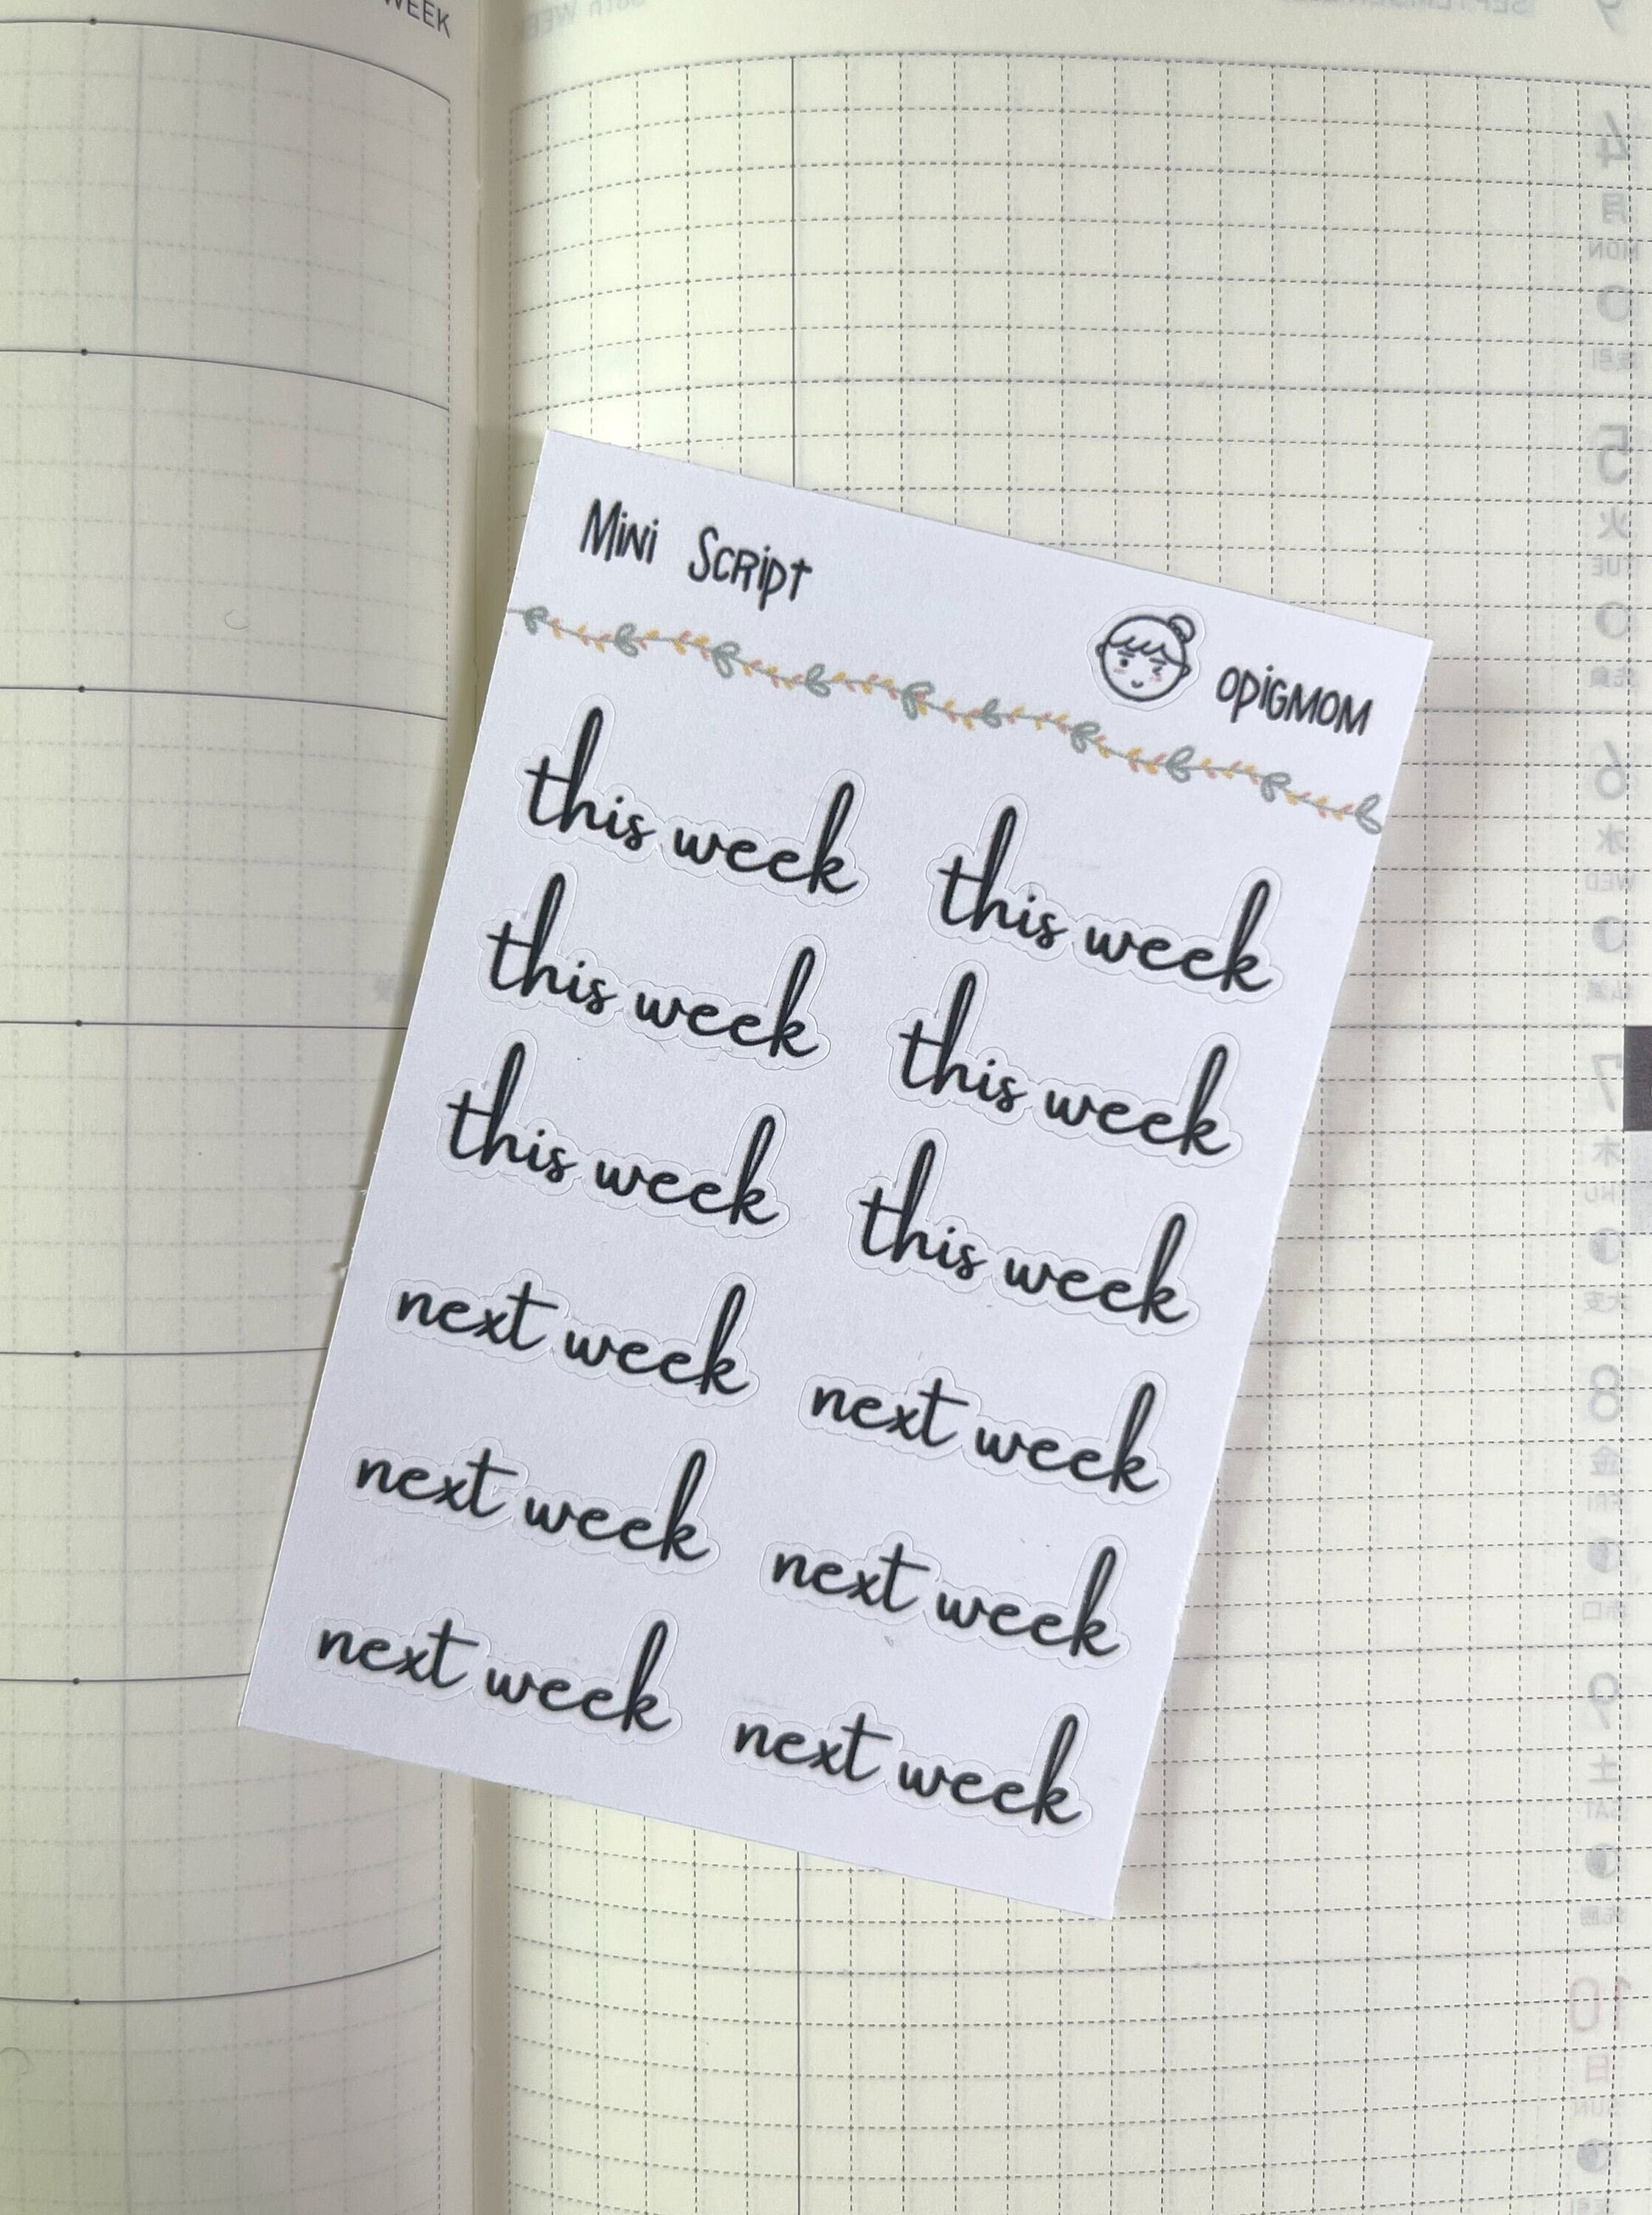 WEEK
Mini Script
opigmom
this week this week
this week this week
this week this week
next week next week
next week next week
next week next week
4
月
MON
5
火
TUE
6
水
WED
7
木
8
金
FRI
9
土
SAT
10
日
SUN